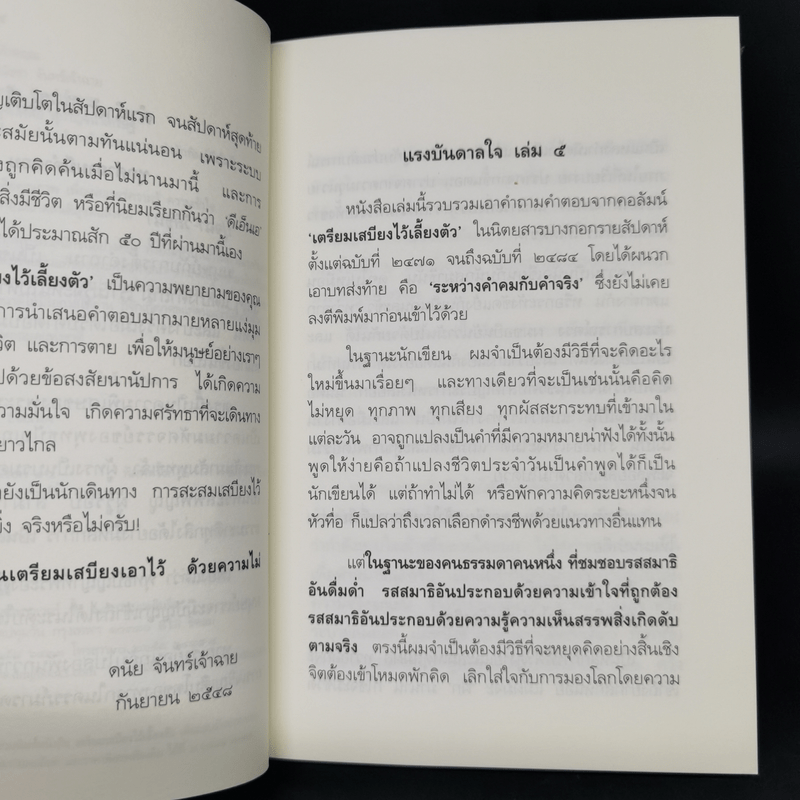 ญเติบโตในสัปดาห์แรก จนสัปดาห์สุดท้าย
ะสมัยนั้นตามทันแน่นอน เพราะระบบ
งถูกคิดค้นเมื่อไม่นานมานี้ และการ
สิ่งมีชีวิต หรือที่นิยมเรียกกันว่า ‘ดีเอ็นเอ’
ได้ประมาณสัก ๕๐ ปีที่ผ่านมานี้เอง
ยงไว้เลี้ยงตัว’ เป็นความพยายามของคุณ
การนำเสนอคำตอบมากมายหลายแง่มุม
วิต และการตาย เพื่อให้มนุษย์อย่างเราๆ
ปด้วยข้อสงสัยนานัปการ ได้เกิดความ
วามมั่นใจ เกิดความศรัทธาที่จะเดินทาง
ยาวไกล
ายังเป็นนักเดินทาง การสะสมเสบียงไว้
ยิ่ง จริงหรือไม่ครับ!
นเตรียมเสบียงเอาไว้ ด้วยความไม่
ดนัย จันทร์เจ้าฉาย
กันยายน ๒๕๔๘
แรงบันดาลใจ เล่ม ๕
หนังสือเล่มนี้รวบรวมเอาคำถามคำตอบจากคอลัมน์
‘เตรียมเสบียงไว้เลี้ยงตัว’ ในนิตยสารบางกอกรายสัปดาห์
ตั้งแต่ฉบับที่ ๒๔๗๑ จนถึงฉบับที่ ๒๔๘๔ โดยได้ผนวก
เอาบทส่งท้าย คือ ‘ระหว่างคำคมกับคำจริง’ ซึ่งยังไม่เคย
ลงตีพิมพ์มาก่อนเข้าไว้ด้วย
ในฐานะนักเขียน ผมจำเป็นต้องมีวิธีที่จะคิดอะไร
ใหม่ขึ้นมาเรื่อยๆ และทางเดียวที่จะเป็นเช่นนั้นคือคิด
ไม่หยุด ทุกภาพ ทุกเสียง ทุกผัสสะกระทบที่เข้ามาใน
แต่ละวัน อาจถูกแปลงเป็นคำที่มีความหมายน่าฟังได้ทั้งนั้น
พูดให้ง่ายคือถ้าแปลงชีวิตประจำวันเป็นคำพูดได้ก็เป็น
นักเขียนได้ แต่ถ้าทำไม่ได้ หรือพักความคิดระยะหนึ่งจน
หัวทื่อ ก็แปลว่าถึงเวลาเลือกดำรงชีพด้วยแนวทางอื่นแทน
แต่ในฐานะของคนธรรมดาคนหนึ่ง ที่ชมชอบรสสมาธิ
อันดื่มด่ำ รสสมาธิอันประกอบด้วยความเข้าใจที่ถูกต้อง
รสสมาธิอันประกอบด้วยความรู้ความเห็นสรรพสิ่งเกิดดับ
ตามจริง ตรงนี้ผมจำเป็นต้องมีวิธีที่จะหยุดคิดอย่างสิ้นเชิง
จิตต้องเข้าโหมดพักคิด เลิกใส่ใจกับการมองโลกโดยความ